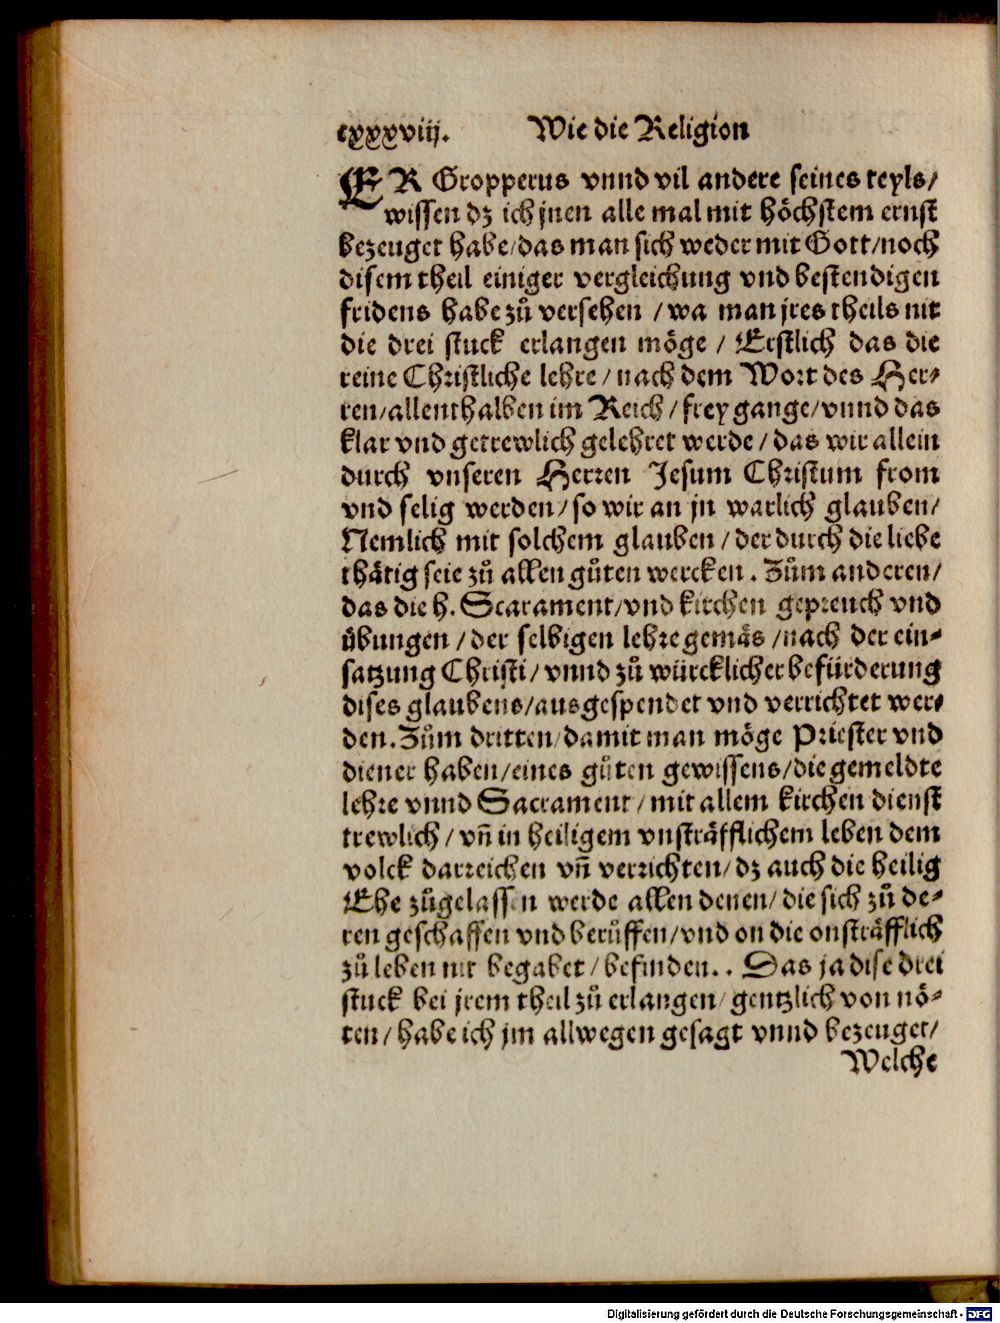 cxxxviij. Wie die Religion
ER Gropperus vnnd vil andere seines teyls/
wissen dz ich jnen alle mal mit höchstem ernst
bezeuget habe/das man sich weder mit Gott/noch
disem theil einiger vergleichung vnd bestendigen
fridens habe zů versehen /wa man jres theils nit
die drei stuck erlangen möge / Erstlich das die
reine Christliche lehre/nach dem Wort des Her-
ren/allenthalben im Reich/frey gange/vnnd das
klar vnd getrewlich gelehret werde/das wir allein
durch vnseren Herren Jesum Christum from
vnd selig werden/so wir an jn warlich glauben/
Nemlich mit solchem glauben/der durch die liebe
thätig seie zů allen gůten wercken. Zům anderen/
das die h. Scarament/vnd kirchen gepreuch vnd
übungen/der selbigen lehre gemäs/nach der ein-
satzung Christi/vnnd zů würcklicher befürderung
dises glaubens/ausgespendet vnd verrichtet wer-
den. Zům dritten/damit man möge Priester vnd
diener haben/eines gůten gewissens/die gemeldte
lehre vnnd Sacrament/mit allem kirchen dienst
trewlich/vn̄ in heiligem vnsträfflichem leben dem
volck darreichen vn̄ verrichten/dz auch die heilig
Ehe zůgelassen werde allen denen/die sich zů de-
ren geschaffen vnd berůffen/vnd on die onsträfflich
zů leben nit begabet/befinden.. Das ja dise drei
stuck bei jrem theil zů erlangen/gentzlich von nö-
ten/habe ich jm allwegen gesagt vnnd bezeuget/
Welche
Digitalisierung gefördert durch die Deutsche Forschungsgemeinschaft - DFG